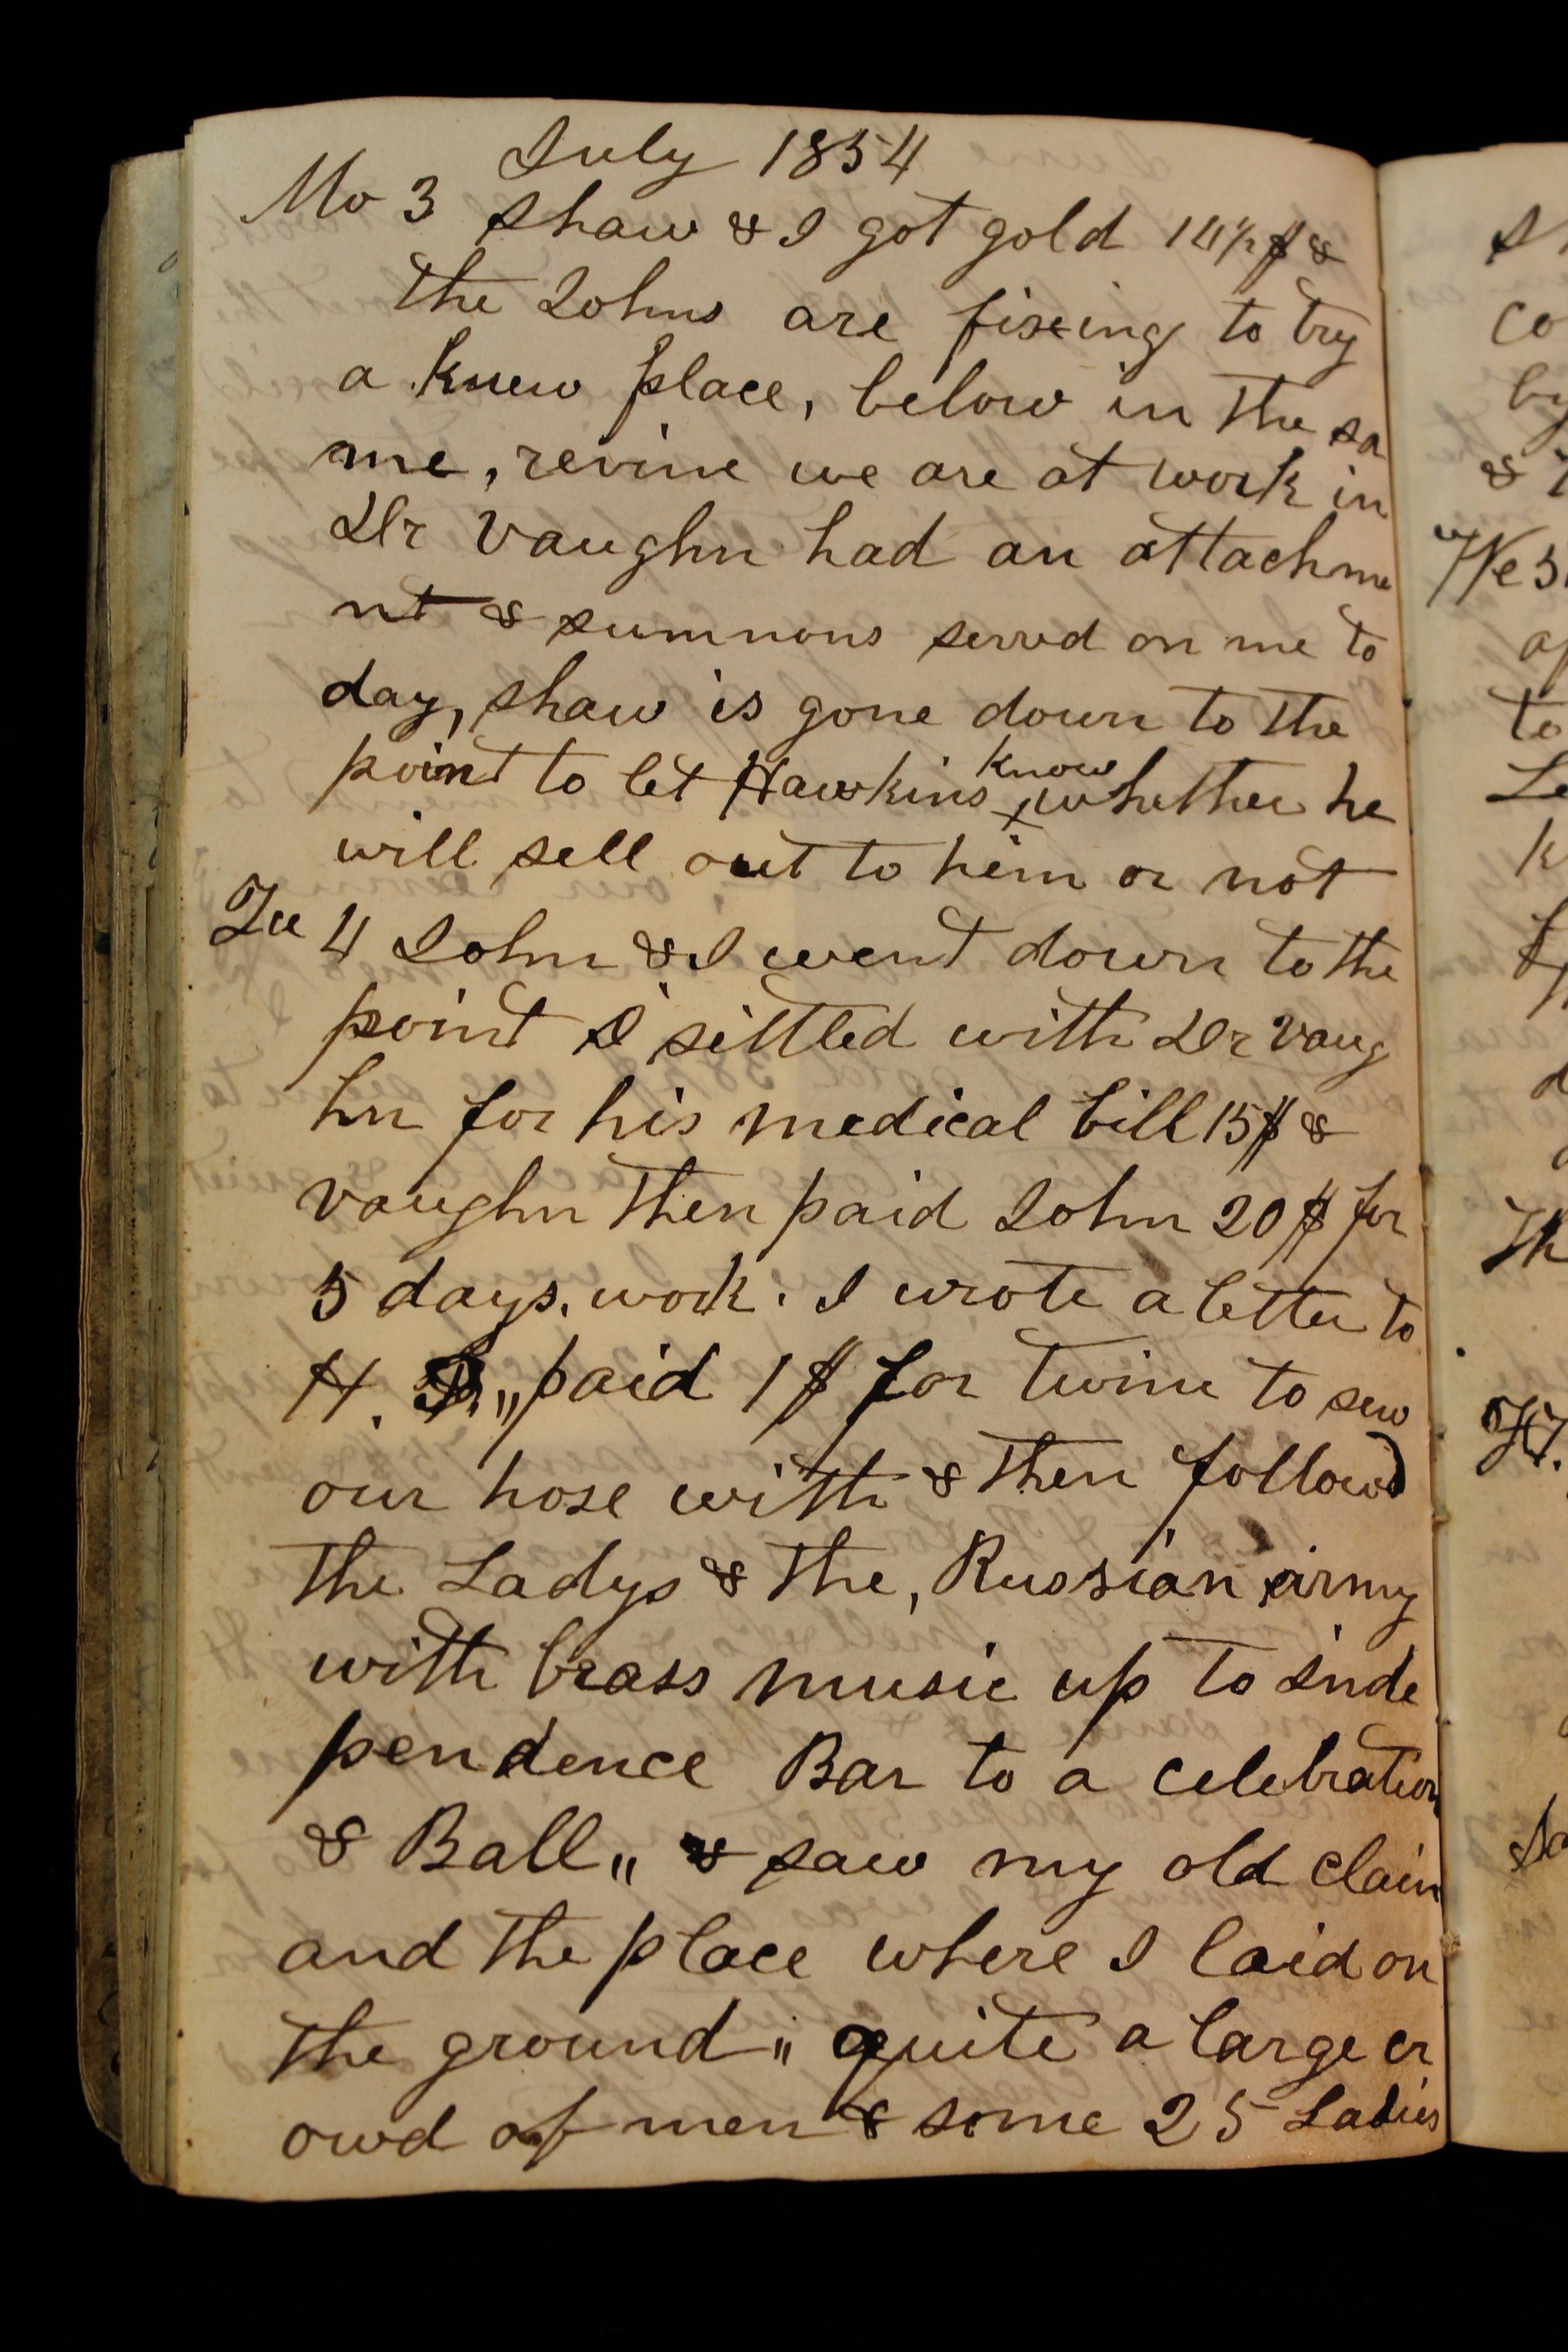 July 1854
Mo 3 Shaw & I got gold 14½ $ &
the Johns are fixeing to try
a knew place, below in the sa
me, revine we are at work in
Dr Vaughn had an attachme
nt & sumnons servd on me to
day, Shaw is gone down to the
point to let Hawkins know whether he
will sell out to him or not
Tu 4 John & I went down to the
point I settled with Dr Vaug
hn for his medical bill 15$ &
Vaughn then paid John 20$ for
5 days. work. I wrote a letter to
H. „ paid 1$ for twine to sew
our hose with & then followd
the Ladys & the, Russian army
with brass music up to Inde
pendence Bar to a celebration
& Ball „ & saw my old claim
and the place where I laid on
the ground „ quite a large cr
owd of men & some 25 Ladies
S
co
by
&
We 5
to
Le
k
Th
Sa